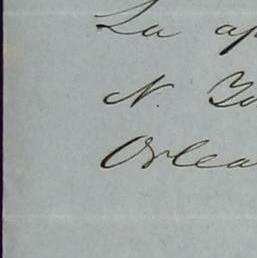 La ap
N. Yo
Orlea